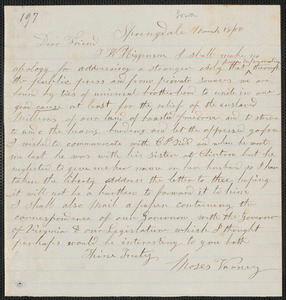 197
Iowa
Springdale March 12/60
Dear Friend
T. W. Higginson I shall make no
apology for addressing a stranger only that through
the public press and from private sources we are
by ties of universal brotherhood to unite in
cause at least for the relief of the enslaved
millions of our land of boasted freedom and to strive
to undo the heavy burdens and let the oppressed go free
I wish to communicate with C P Tidd and when he wrote
me last he was with his sister at Clinton but he
neglected to give me her name or her husband's so I have
taken the liberty address the letter to thee hoping
it will not be a burthen to forward it to him
I shall also mail a paper containing the
correspondence of our Governor with the Governor
of Virginia & our Legislature which I thought
perhaps would be interesting to you both
Thine Truly
Moses Varney